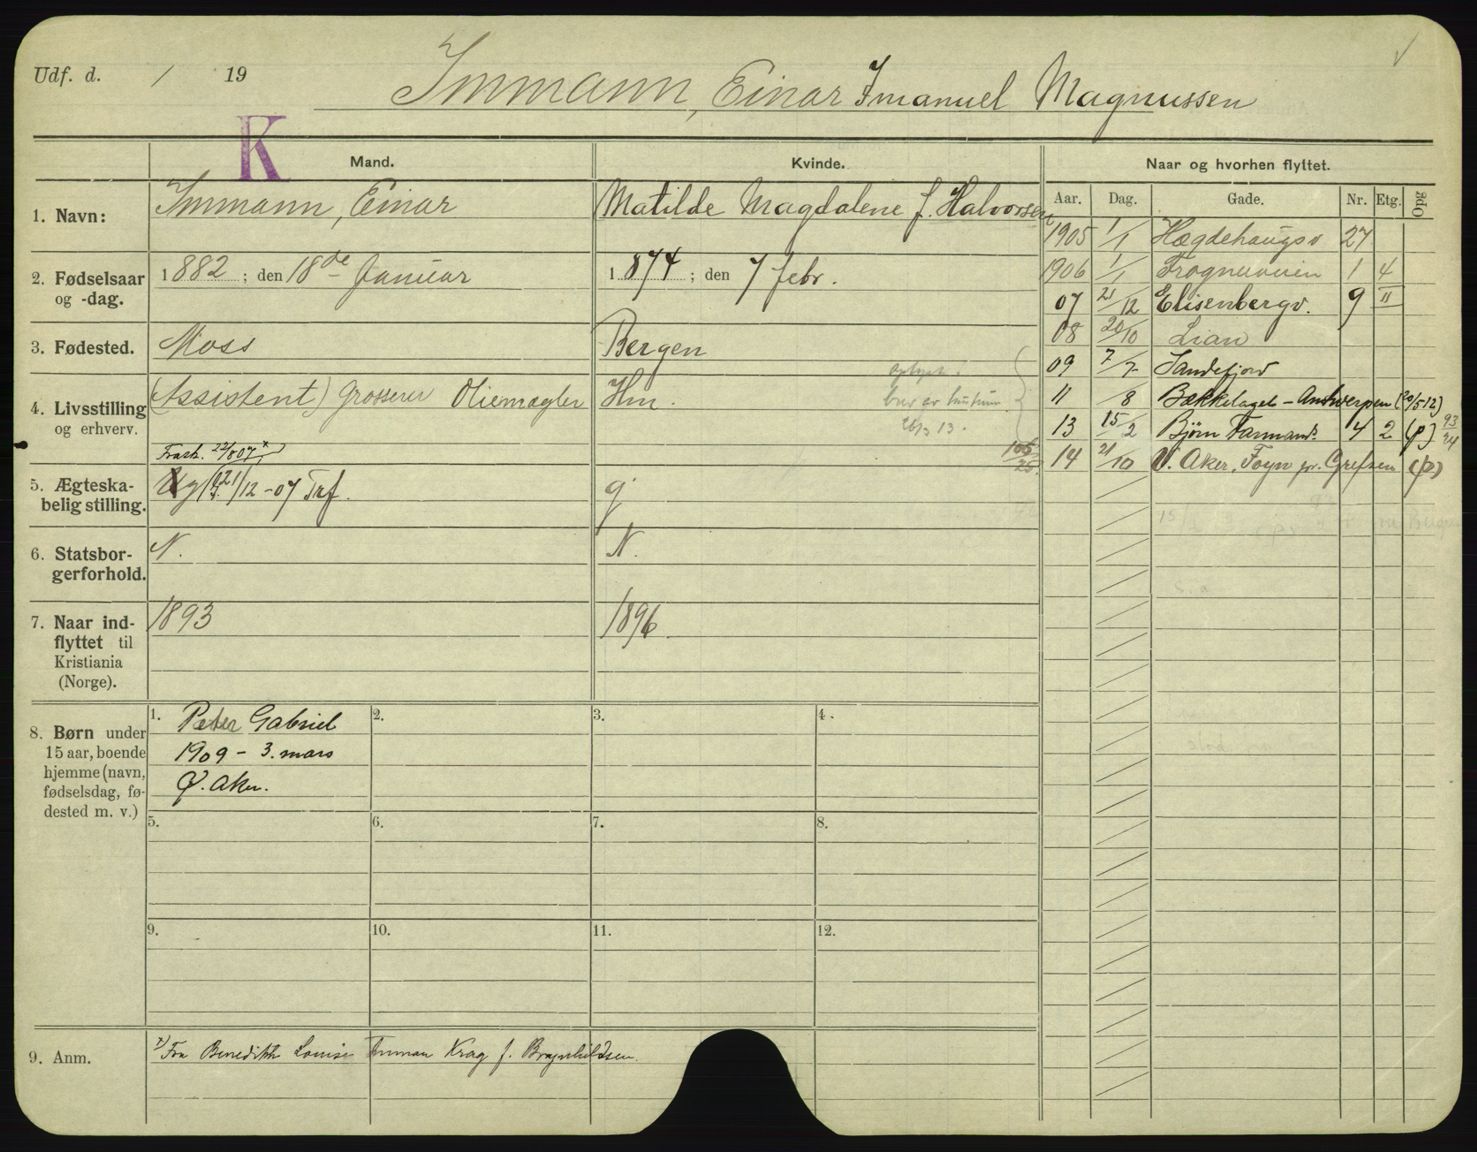 Udf. d. / 19
Immann, Einar Imanuel Magnussen
K
Mand.
Kvinde.
Naar og hvorhen flyttet.
Aar. Dag. Gade. Nr. Etg. Opg
1. Navn: Immann, Einar
Matilde Magdalene f. Halvorsen
2. Fødselsaar og -dag.
1882; den 18de Januar
1874; den 7 febr.
3. Fødested. Moss
Bergen
4. Livsstilling og erhverv.
(Assistent) Grosserer Oliemægler
Hm.
26/3 13.
Frask. 22/8 07 x)
5. Ægteska-
belig stilling.
Ug (21/12-07 Trf.
g
6. Statsbor-
gerforhold.
N.
N.
7. Naar ind-
flyttet til
Kristiania
(Norge).
1893
1896
1905 1/1 Hægdehaugsv 27
1906 1/1 Frognerveien 1 4
07 21/12 Elisenbergv. 9 II
08 20/10 Lian
09 7/7 Sandefjord
11 /8 Bækkelaget - Antwerpen (20/5 12)
13 15/2 Bjørn Farmands 4 2 (p) 93/24
14 21/10 V. Aker, Foyn pr. Grefsen (p)
8. Børn under
15 aar, boende
hjemme (navn,
fødselsdag, fø-
dested m. v.)
1. Peter Gabriel
1909 - 3. mars
Ø. Aker.
2.
3.
4.
5.
6.
7.
8.
9.
10.
11.
12.
9. Anm.
x) Fra Benedikte Louise Imman Krag f. Bragnhildsen.